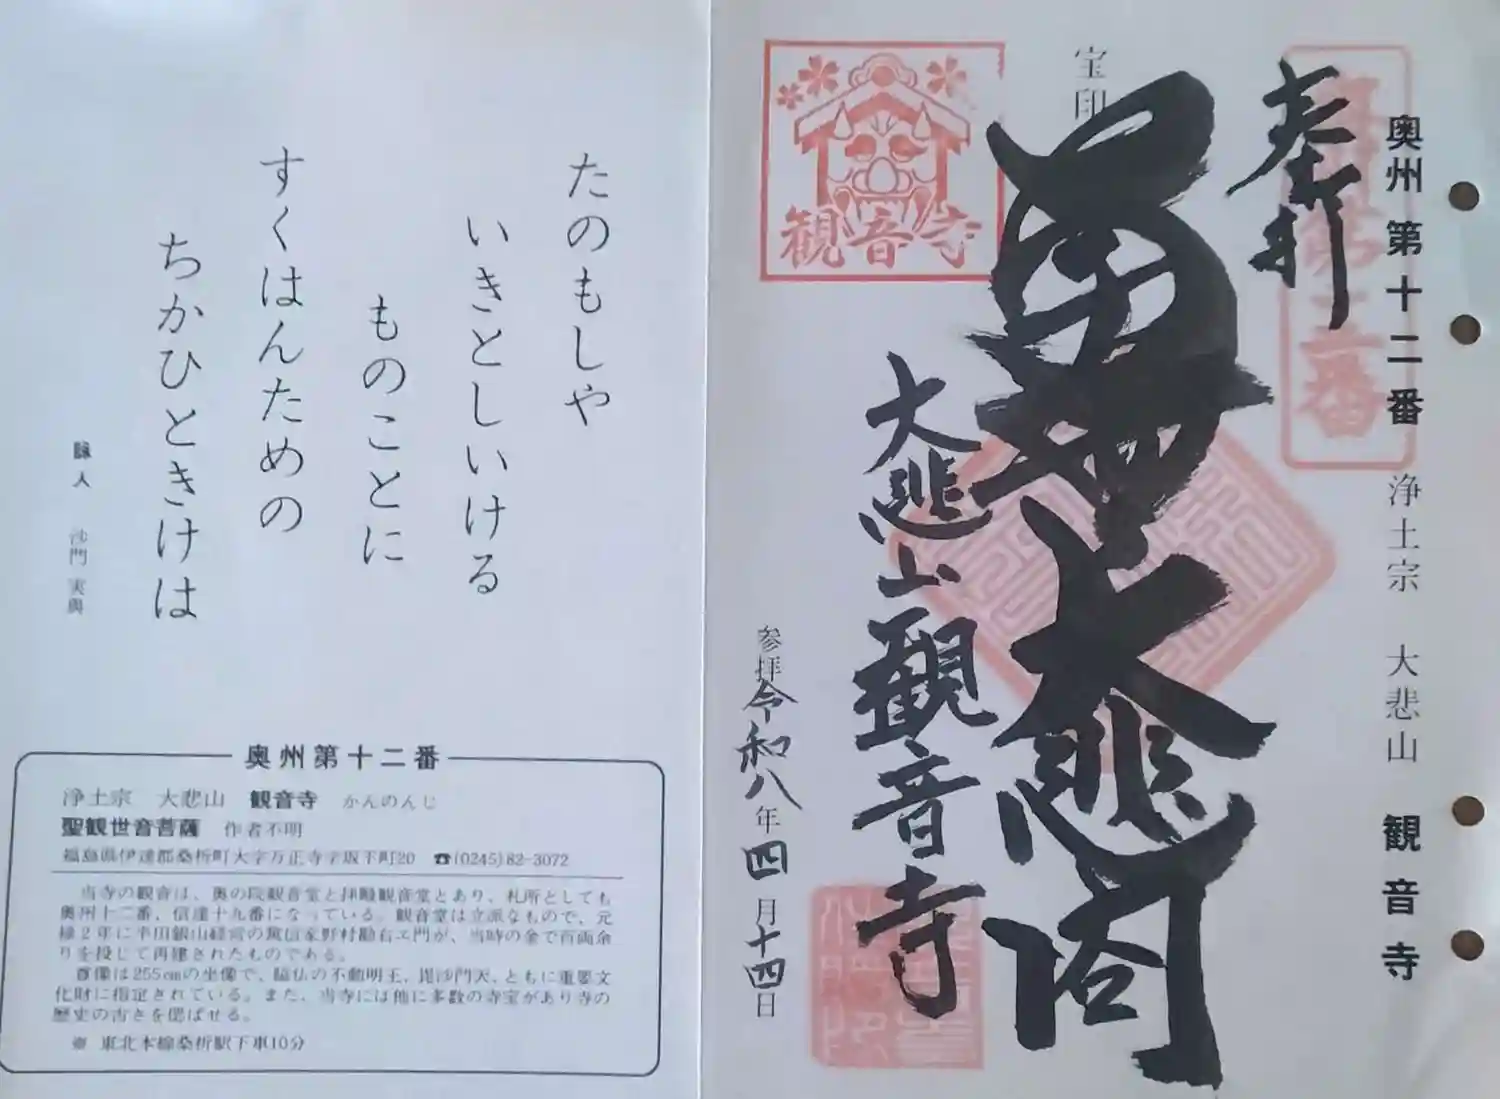 奥州第十二番 浄土宗 大悲山 観音寺
奉拝
宝印
大悲閣
大悲山観音寺
観音寺
参拝令和八年四月十四日
たのもしや
いきとしいける
ものことに
すくはんための
ちかひときけは
詠人 沙門 実興
奥州第十二番
浄土宗 大悲山 観音寺 かんのんじ
聖観世音菩薩 作者不明
福島県伊達郡桑折町大字万正寺字坂下町20 ☎(0245)82-3072
当寺の観音は、奥の院観音堂と拝殿観音堂とあり、札所としても
奥州十二番、信達十九番になっている。観音堂は立派なもので、元
禄2年に半田銀山経営の篤信家野村勘右エ門が、当時の金で百両余
りを投じて再建されたものである。
尊像は255cmの坐像で、脇仏の不動明王、毘沙門天、ともに重要文
化財に指定されている。また、当寺には他に多数の寺宝があり寺の
歴史の古さを偲ばせる。
※ 東北本線桑折駅下車10分